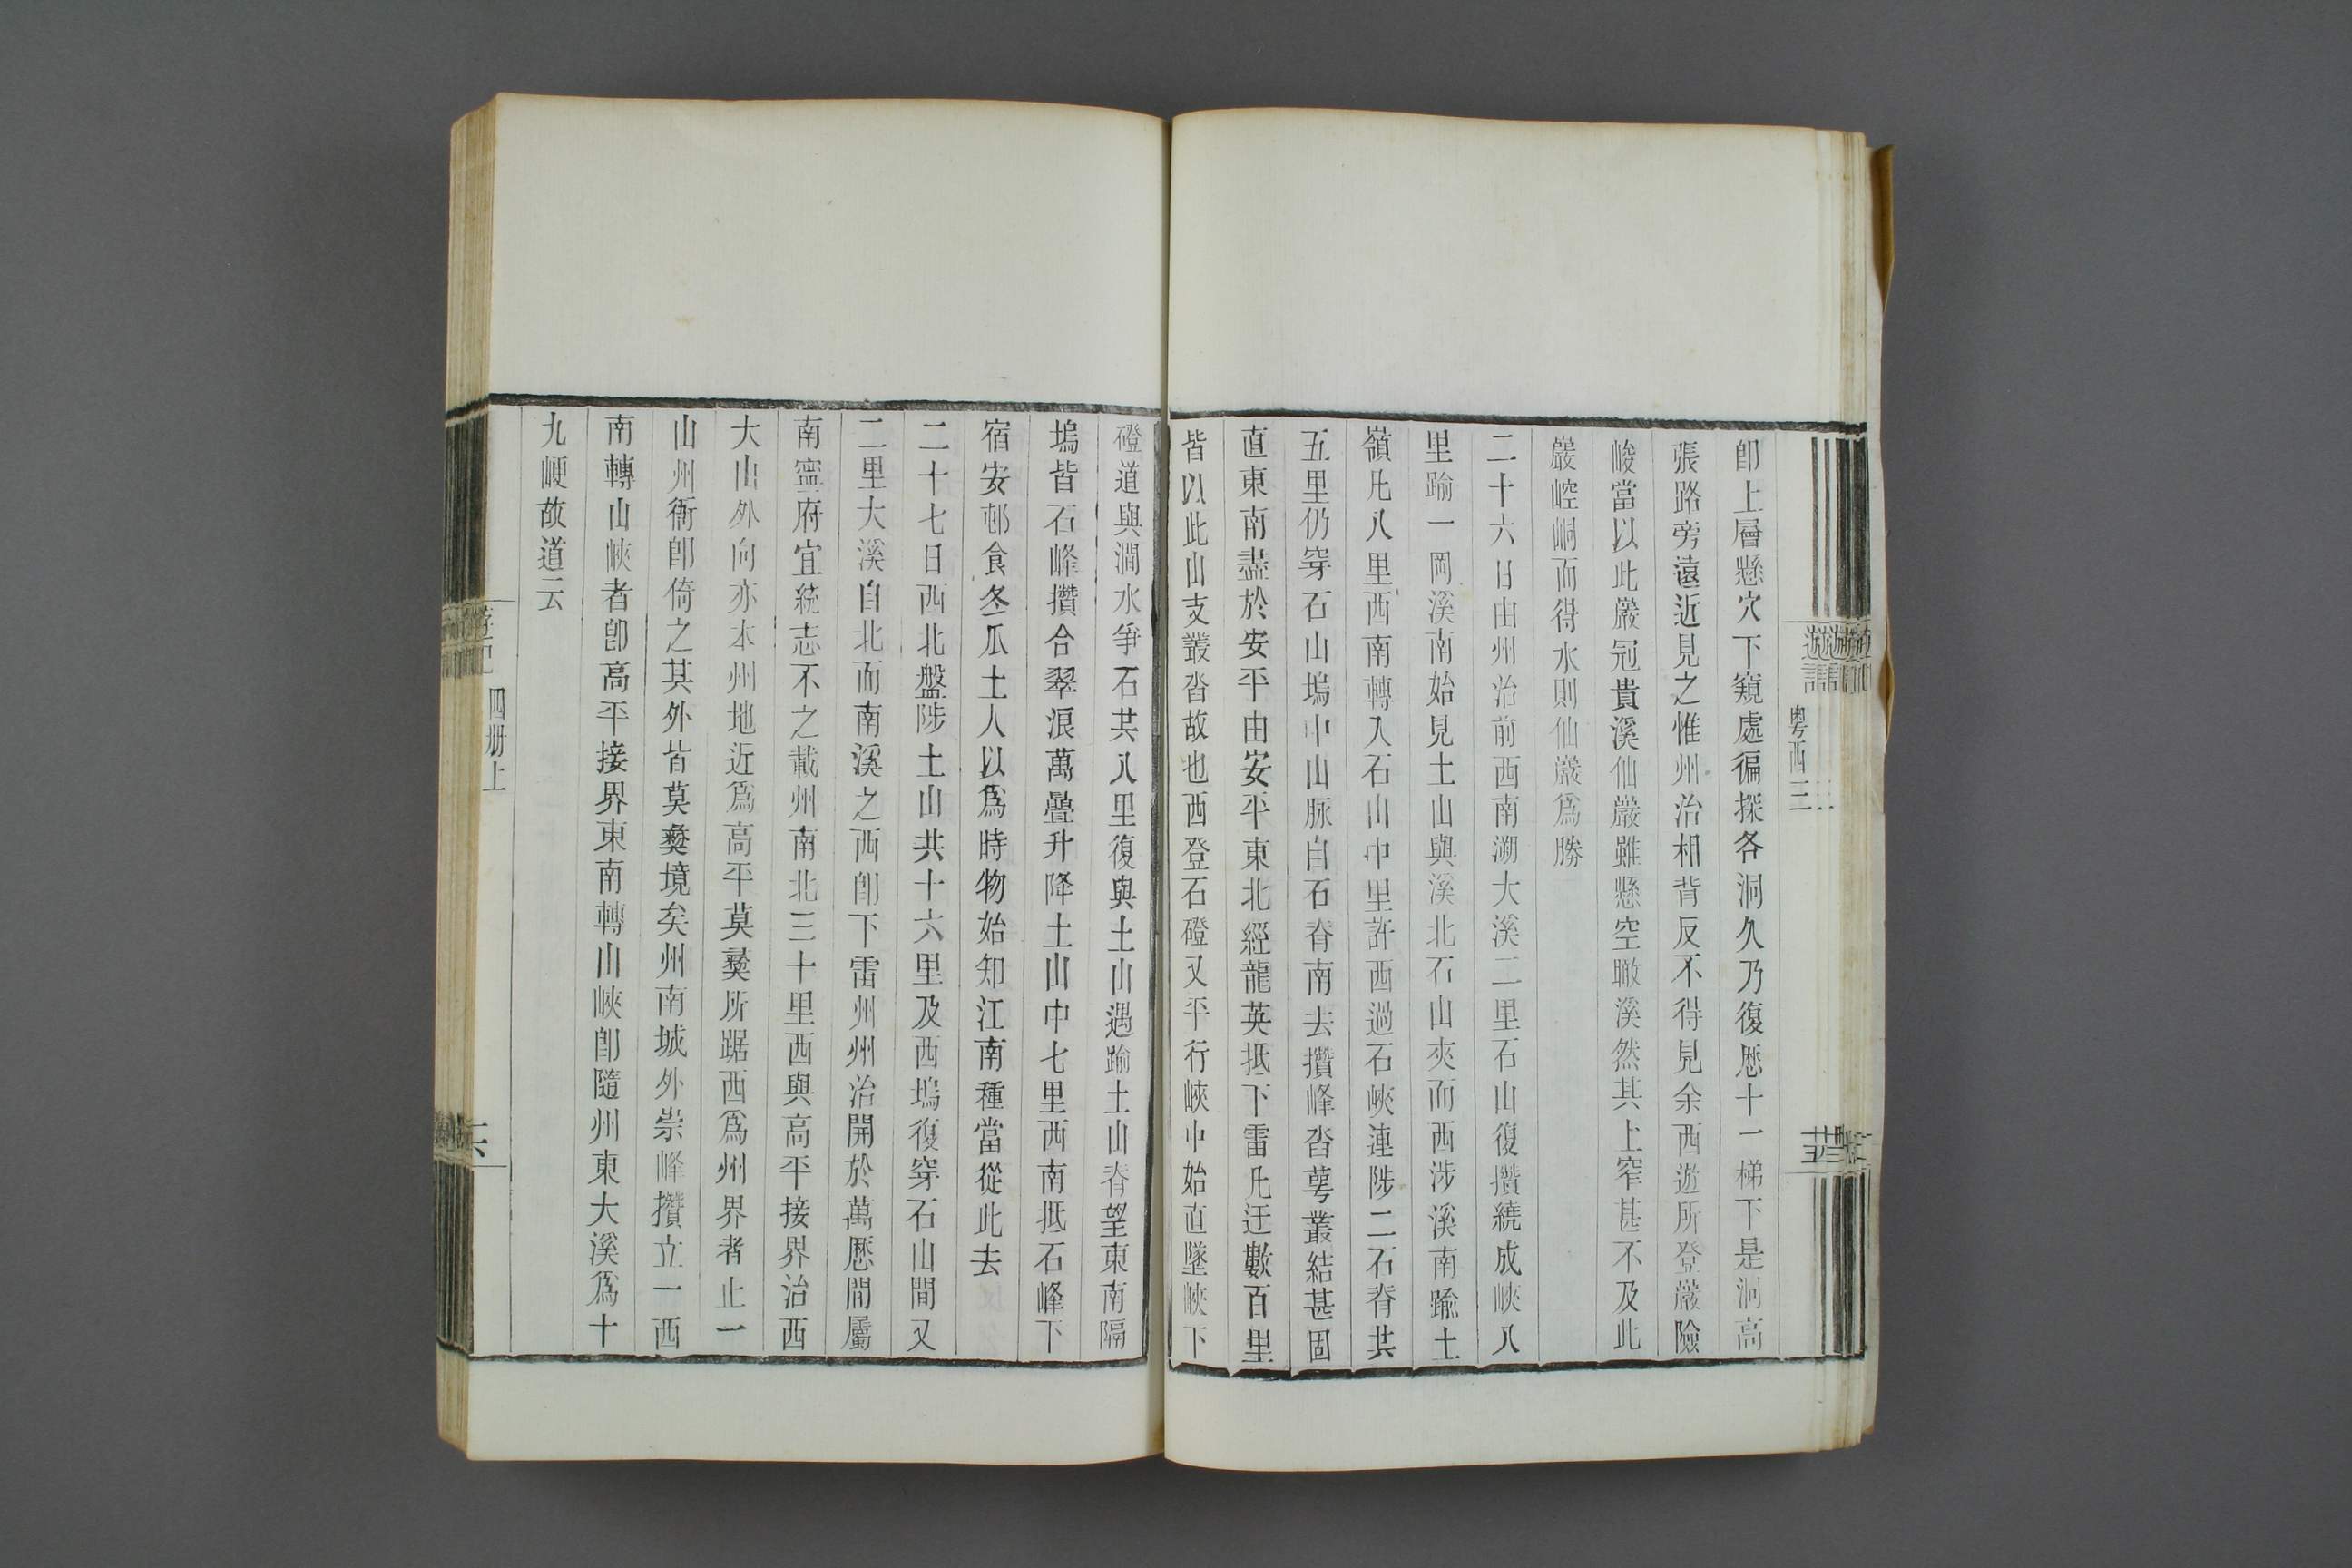 粵西三
卽上層懸穴下窺處徧探各洞久乃復歷十一梯下是洞高
張路旁遠近見之惟州治相背反不得見余西遊所登巖險
峻當以此巖冠貴溪仙巖雖懸空瞰溪然其上窄甚不及此
巖崆峒而得水則仙巖爲勝
二十六日由州治前西南溯大溪二里石山復攢繞成峽八
里踰一岡溪南始見土山與溪北石山夾而西涉溪南踰土
嶺凡八里西南轉入石山中里許西過石峽連陟二石脊共
五里仍穿石山塢中山脈自石脊南去攢峰沓萼叢結甚固
直東南盡於安平由安平東北經龍英抵下雷凡迂數百里
皆以此山支叢沓故也西登石磴又平行峽中始直墜峽下
磴道與澗水爭石共八里復與土山遇踰土山脊望東南隔
塢皆石峰攢合翠浪萬疊升降土山中七里西南抵石峰下
宿安邨食冬瓜土人以爲時物始知江南種當從此去
二十七日西北盤陟土山共十六里及西塢復穿石山間又
二里大溪自北而南溪之西卽下雷州州治開於萬歷間屬
南寧府宜統志不之載州南北三十里西與高平接界治西
大山外向亦本州地近爲高平莫彝所踞西爲州界者止一
山州衙卽倚之其外皆莫彝境矣州南城外崇峰攢立一西
南轉山峽者卽高平接界東南轉山峽卽隨州東大溪爲十
九峺故道云
四册上